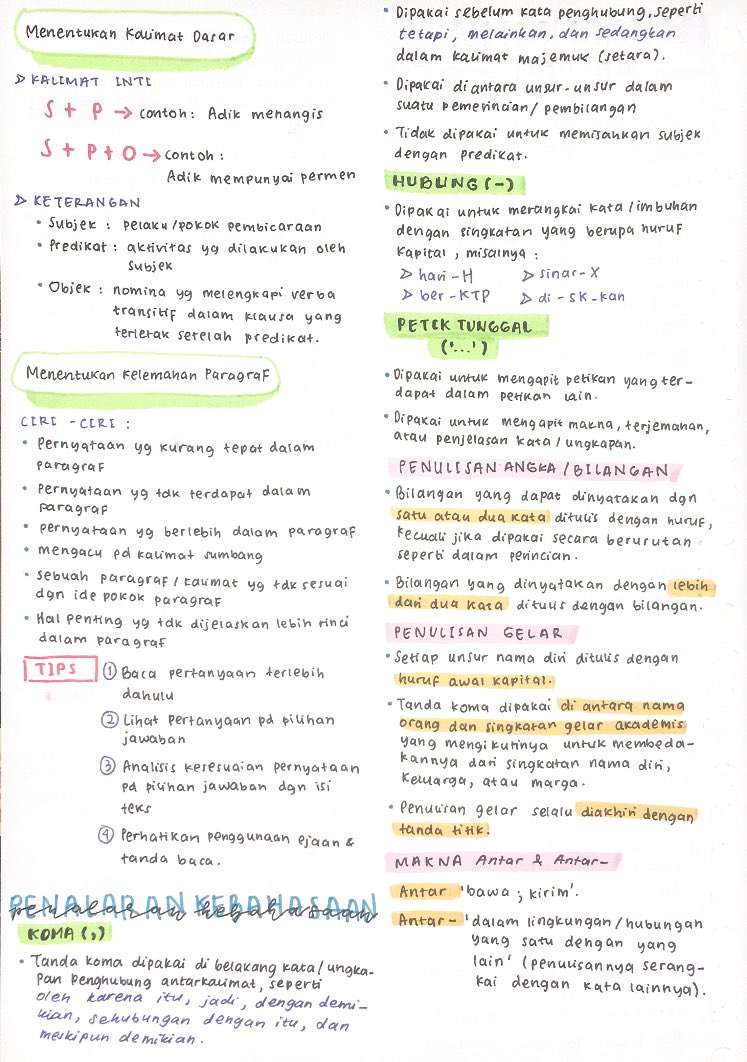 Menentukan Kalimat Dasar
KALIMAT INTI
S + P → contoh : Adik menangis
S + P + O → contoh :
Adik mempunyai permen
KETERANGAN
• Subjek : pelaku/pokok pembicaraan
• Predikat : aktivitas yg dilakukan oleh
subjek
• Objek : nomina yg melengkapi verba
transitif dalam klausa yang
terletak setelah predikat.
Menentukan Kelemahan Paragraf
CIRI - CIRI :
• Pernyataan yg kurang tepat dalam
paragraf
• Pernyataan yg tdk terdapat dalam
paragraf
• pernyataan yg berlebih dalam paragraf
• mengacu pd kalimat sumbang
• sebuah paragraf / kalimat yg tdk sesuai
dgn ide pokok paragraf
• Hal penting yg tdk dijelaskan lebih rinci
dalam paragraf
TIPS
① Baca pertanyaan terlebih
dahulu
② Lihat Pertanyaan pd pilihan
jawaban
③ Analisis kesesuaian pernyataan
pd pilihan jawaban dgn isi
teks
④ Perhatikan penggunaan ejaan &
tanda baca.
PENALARAN KEBAHASAAN
penalaran kebahasaan
KOMA (,)
• Tanda koma dipakai di belakang kata/ungka-
pan penghubung antarkalimat, seperti
oleh karena itu, jadi, dengan demi-
kian, sehubungan dengan itu, dan
meskipun demikian.
• Dipakai sebelum kata penghubung, seperti
tetapi, melainkan, dan sedangkan
dalam kalimat majemuk (setara).
• Dipakai diantara unsur-unsur dalam
suatu pemerincian/ pembilangan
• Tidak dipakai untuk memisahkan subjek
dengan predikat.
HUBUNG (-)
• Dipakai untuk merangkai kata /imbuhan
dengan singkatan yang berupa huruf
kapital, misalnya :
hari - H
sinar - X
ber - KTP
di - SK - kan
PETIK TUNGGAL
('...')
• Dipakai untuk mengapit petikan yang ter-
dapat dalam petikan lain.
• Dipakai untuk mengapit makna, terjemahan,
atau penjelasan kata / ungkapan.
PENULISAN ANGKA / BILANGAN
• Bilangan yang dapat dinyatakan dgn
satu atau dua kata ditulis dengan huruf,
kecuali jika dipakai secara berurutan
seperti dalam perincian.
• Bilangan yang dinyatakan dengan lebih
dari dua kata ditulis dengan bilangan.
PENULISAN GELAR
• Setiap unsur nama diri ditulis dengan
huruf awal kapital.
• Tanda koma dipakai di antara nama
orang dan singkatan gelar akademis
yang mengikutinya untuk membeda-
kannya dari singkatan nama diri,
keluarga, atau marga.
• Penulisan gelar selalu diakhiri dengan
tanda titik.
MAKNA Antar & Antar-
Antar 'bawa ; kirim'.
Antar - 'dalam lingkungan / hubungan
yang satu dengan yang
lain' (penulisannya serang-
kai dengan kata lainnya).